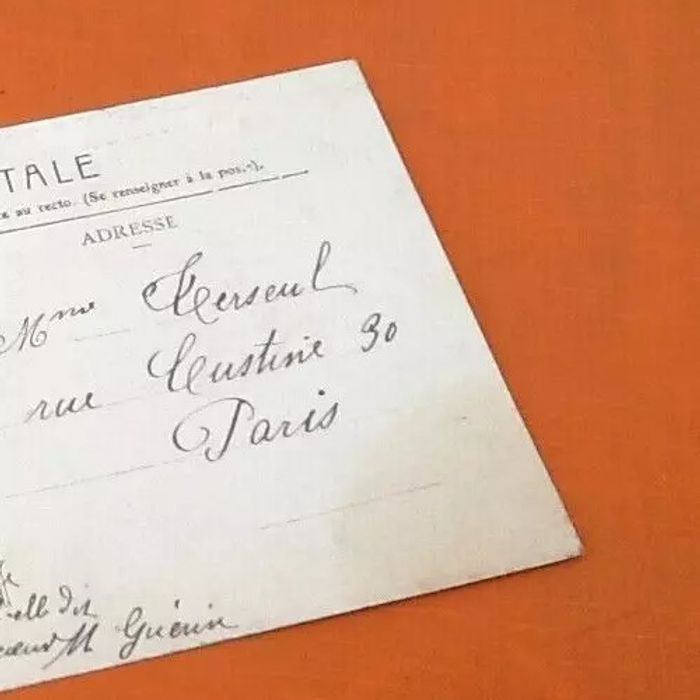 TALE
au recto. (Se renseigner à la poste).
ADRESSE
Mme Kerseul
rue Custine 30
Paris
elle dit
M Guérin